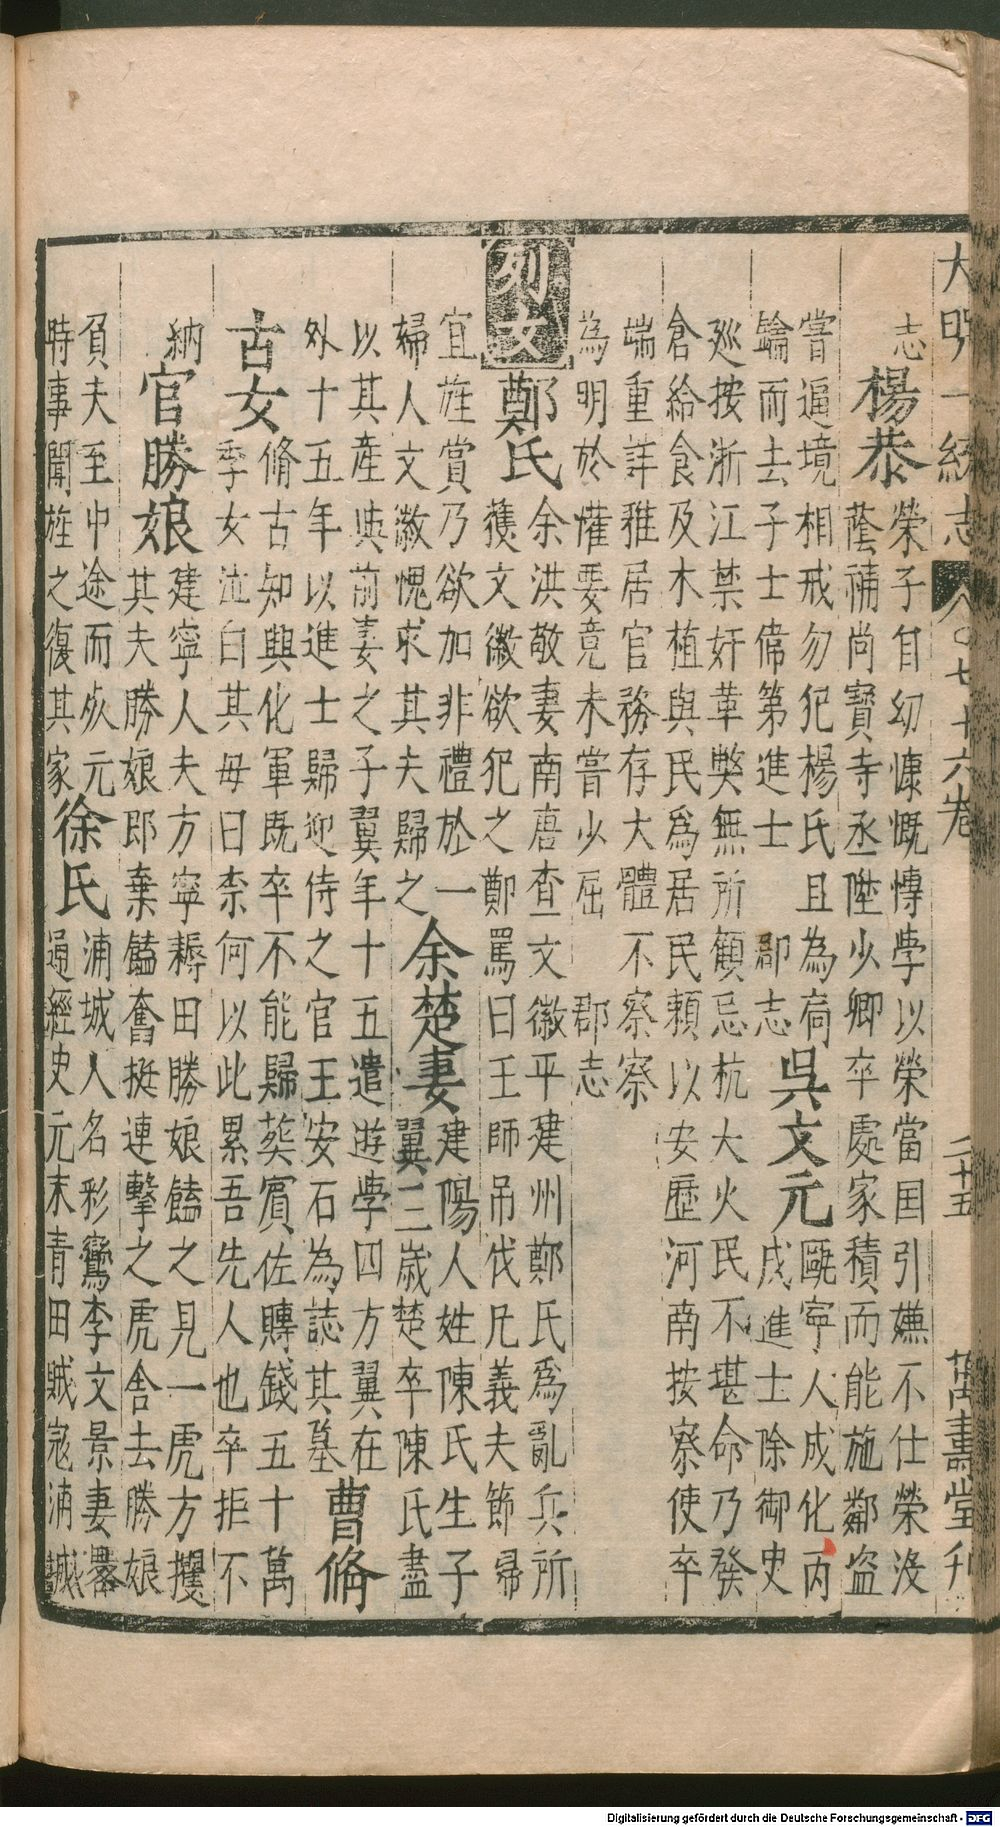 大明一統志 八〇七十六卷 二十五 萬壽堂刋
志楊恭榮子自幼慷慨博學以榮當国引嫌不仕榮没
蔭補尚寳寺丞陞少卿卒處家積而能施鄰盜
嘗逼境相戒勿犯楊氏且為 吳文元甌寧人成化丙
戌進士除御史
論而去子士偉第進士 郡志
廵按浙江禁奸革獘無所顧忌杭大火民不堪命乃發
倉給食及木植與民爲居民頼以安歴河南按察使卒
端重詳雅居官務存大體不察察
為明於懽要竟未嘗少屈 郡志
列女鄭氏余洪敬妻南唐查文徽平建州鄭氏爲亂兵所
獲文徽欲犯之鄭罵曰王師吊伐凡義夫節婦
宜旌賞乃欲加非禮於一余楚妻建陽人姓陳氏生子
婦人文徽愧求其夫歸之 翼三歲楚卒陳氏盡
以其產與前妻之子翼年十五遣遊學四方翼在
外十五年以進士歸迎侍之官王安石為誌其墓曹脩
古女脩古知興化軍既卒不能歸葬賓佐賻錢五十萬
季女泣白其母曰柰何以此累吾先人也卒拒不
納官勝娘建寧人夫方寧耨田勝娘饁之見一虎方攫
其夫勝娘即棄饁奮挺連擊之虎舍去勝娘
負夫至中途而死元徐氏浦城人名彩鸞李文景妻畧
時事聞旌之復其家 通經史元末青田賊宼浦城
Digitalisierung gefördert durch die Deutsche Forschungsgemeinschaft - DFG